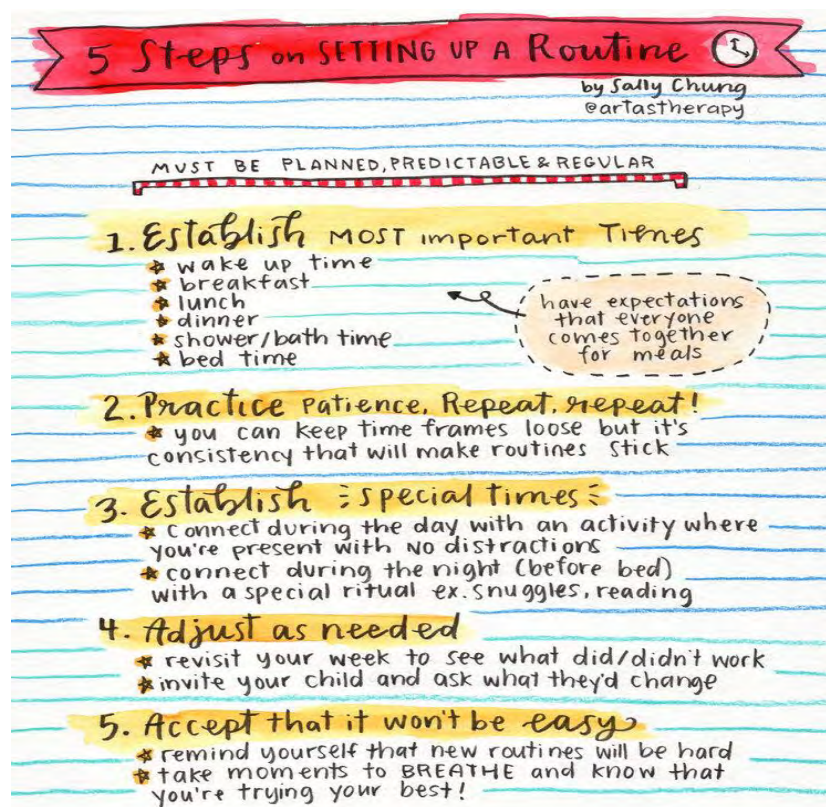 5 Steps on SETTING UP A Routine
by Sally Chung
@artastherapy
MUST BE PLANNED, PREDICTABLE & REGULAR
1. Establish MOST important Times
wake up time
breakfast
lunch
dinner
shower/bath time
bed time
have expectations
that everyone
comes together
for meals
2. Practice Patience, Repeat, repeat!
you can keep time frames loose but it's
consistency that will make routines stick
3. Establish special times
connect during the day with an activity where
you're present with NO distractions
connect during the night (before bed)
with a special ritual ex. snuggles, reading
4. Adjust as needed
revisit your week to see what did/didn't work
invite your child and ask what they'd change
5. Accept that it won't be easy
remind yourself that new routines will be hard
take moments to BREATHE and know that
you're trying your best!